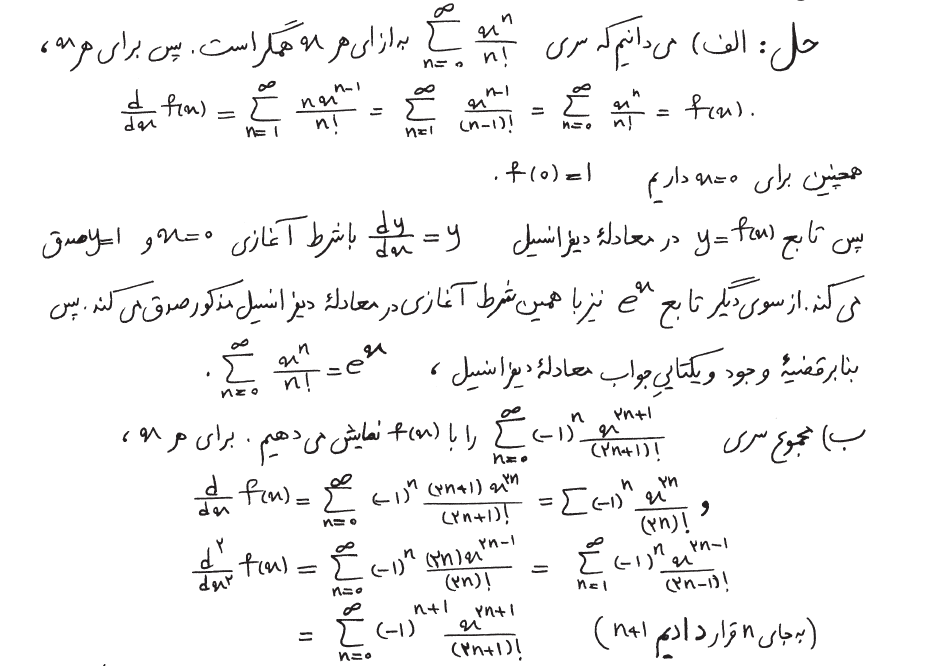 حل: الف) می‌دانیم که سری $\sum_{n=0}^{\infty} \frac{x^n}{n!}$ به ازای هر x همگراست. پس برای هر x،
$\frac{d}{dx} f(x) = \sum_{n=1}^{\infty} \frac{nx^{n-1}}{n!} = \sum_{n=1}^{\infty} \frac{x^{n-1}}{(n-1)!} = \sum_{n=0}^{\infty} \frac{x^n}{n!} = f(x).$
همچنین برای x=0 داریم f(0)=1.
پس تابع y=f(x) در معادلهٔ دیفرانسیل $\frac{dy}{dx} = y$ با شرط آغازی x=0 و y=1 صدق
می‌کند. از سوی دیگر تابع $e^x$ نیز با همین شرط آغازی در معادلهٔ دیفرانسیل مذکور صدق می‌کند. پس
بنابر قضیهٔ وجود و یکتایی جواب معادلهٔ دیفرانسیل، $\sum_{n=0}^{\infty} \frac{x^n}{n!} = e^x$.
ب) مجموع سری $\sum_{n=0}^{\infty} (-1)^n \frac{x^{۲n+1}}{(۲n+1)!}$ را با f(x) نمایش می‌دهیم. برای هر x،
$\frac{d}{dx} f(x) = \sum_{n=0}^{\infty} (-1)^n \frac{(۲n+1) x^{۲n}}{(۲n+1)!} = \sum (-1)^n \frac{x^{۲n}}{(۲n)!}$ و
$\frac{d^۲}{dx^۲} f(x) = \sum_{n=0}^{\infty} (-1)^n \frac{(۲n) x^{۲n-1}}{(۲n)!} = \sum_{n=1}^{\infty} (-1)^n \frac{x^{۲n-1}}{(۲n-1)!}$
$= \sum_{n=0}^{\infty} (-1)^{n+1} \frac{x^{۲n+1}}{(۲n+1)!}$ (به جای n قرار دادیم n+1)